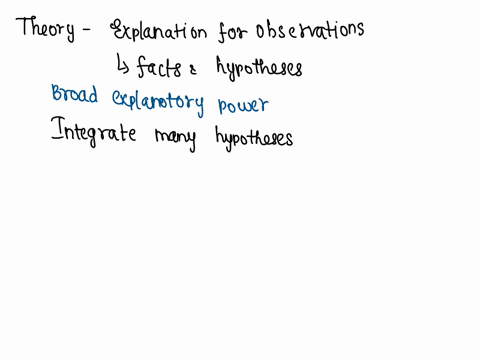 Theory - Explanation for observations
↳ facts & hypotheses
Broad explanatory power
Integrate many hypotheses